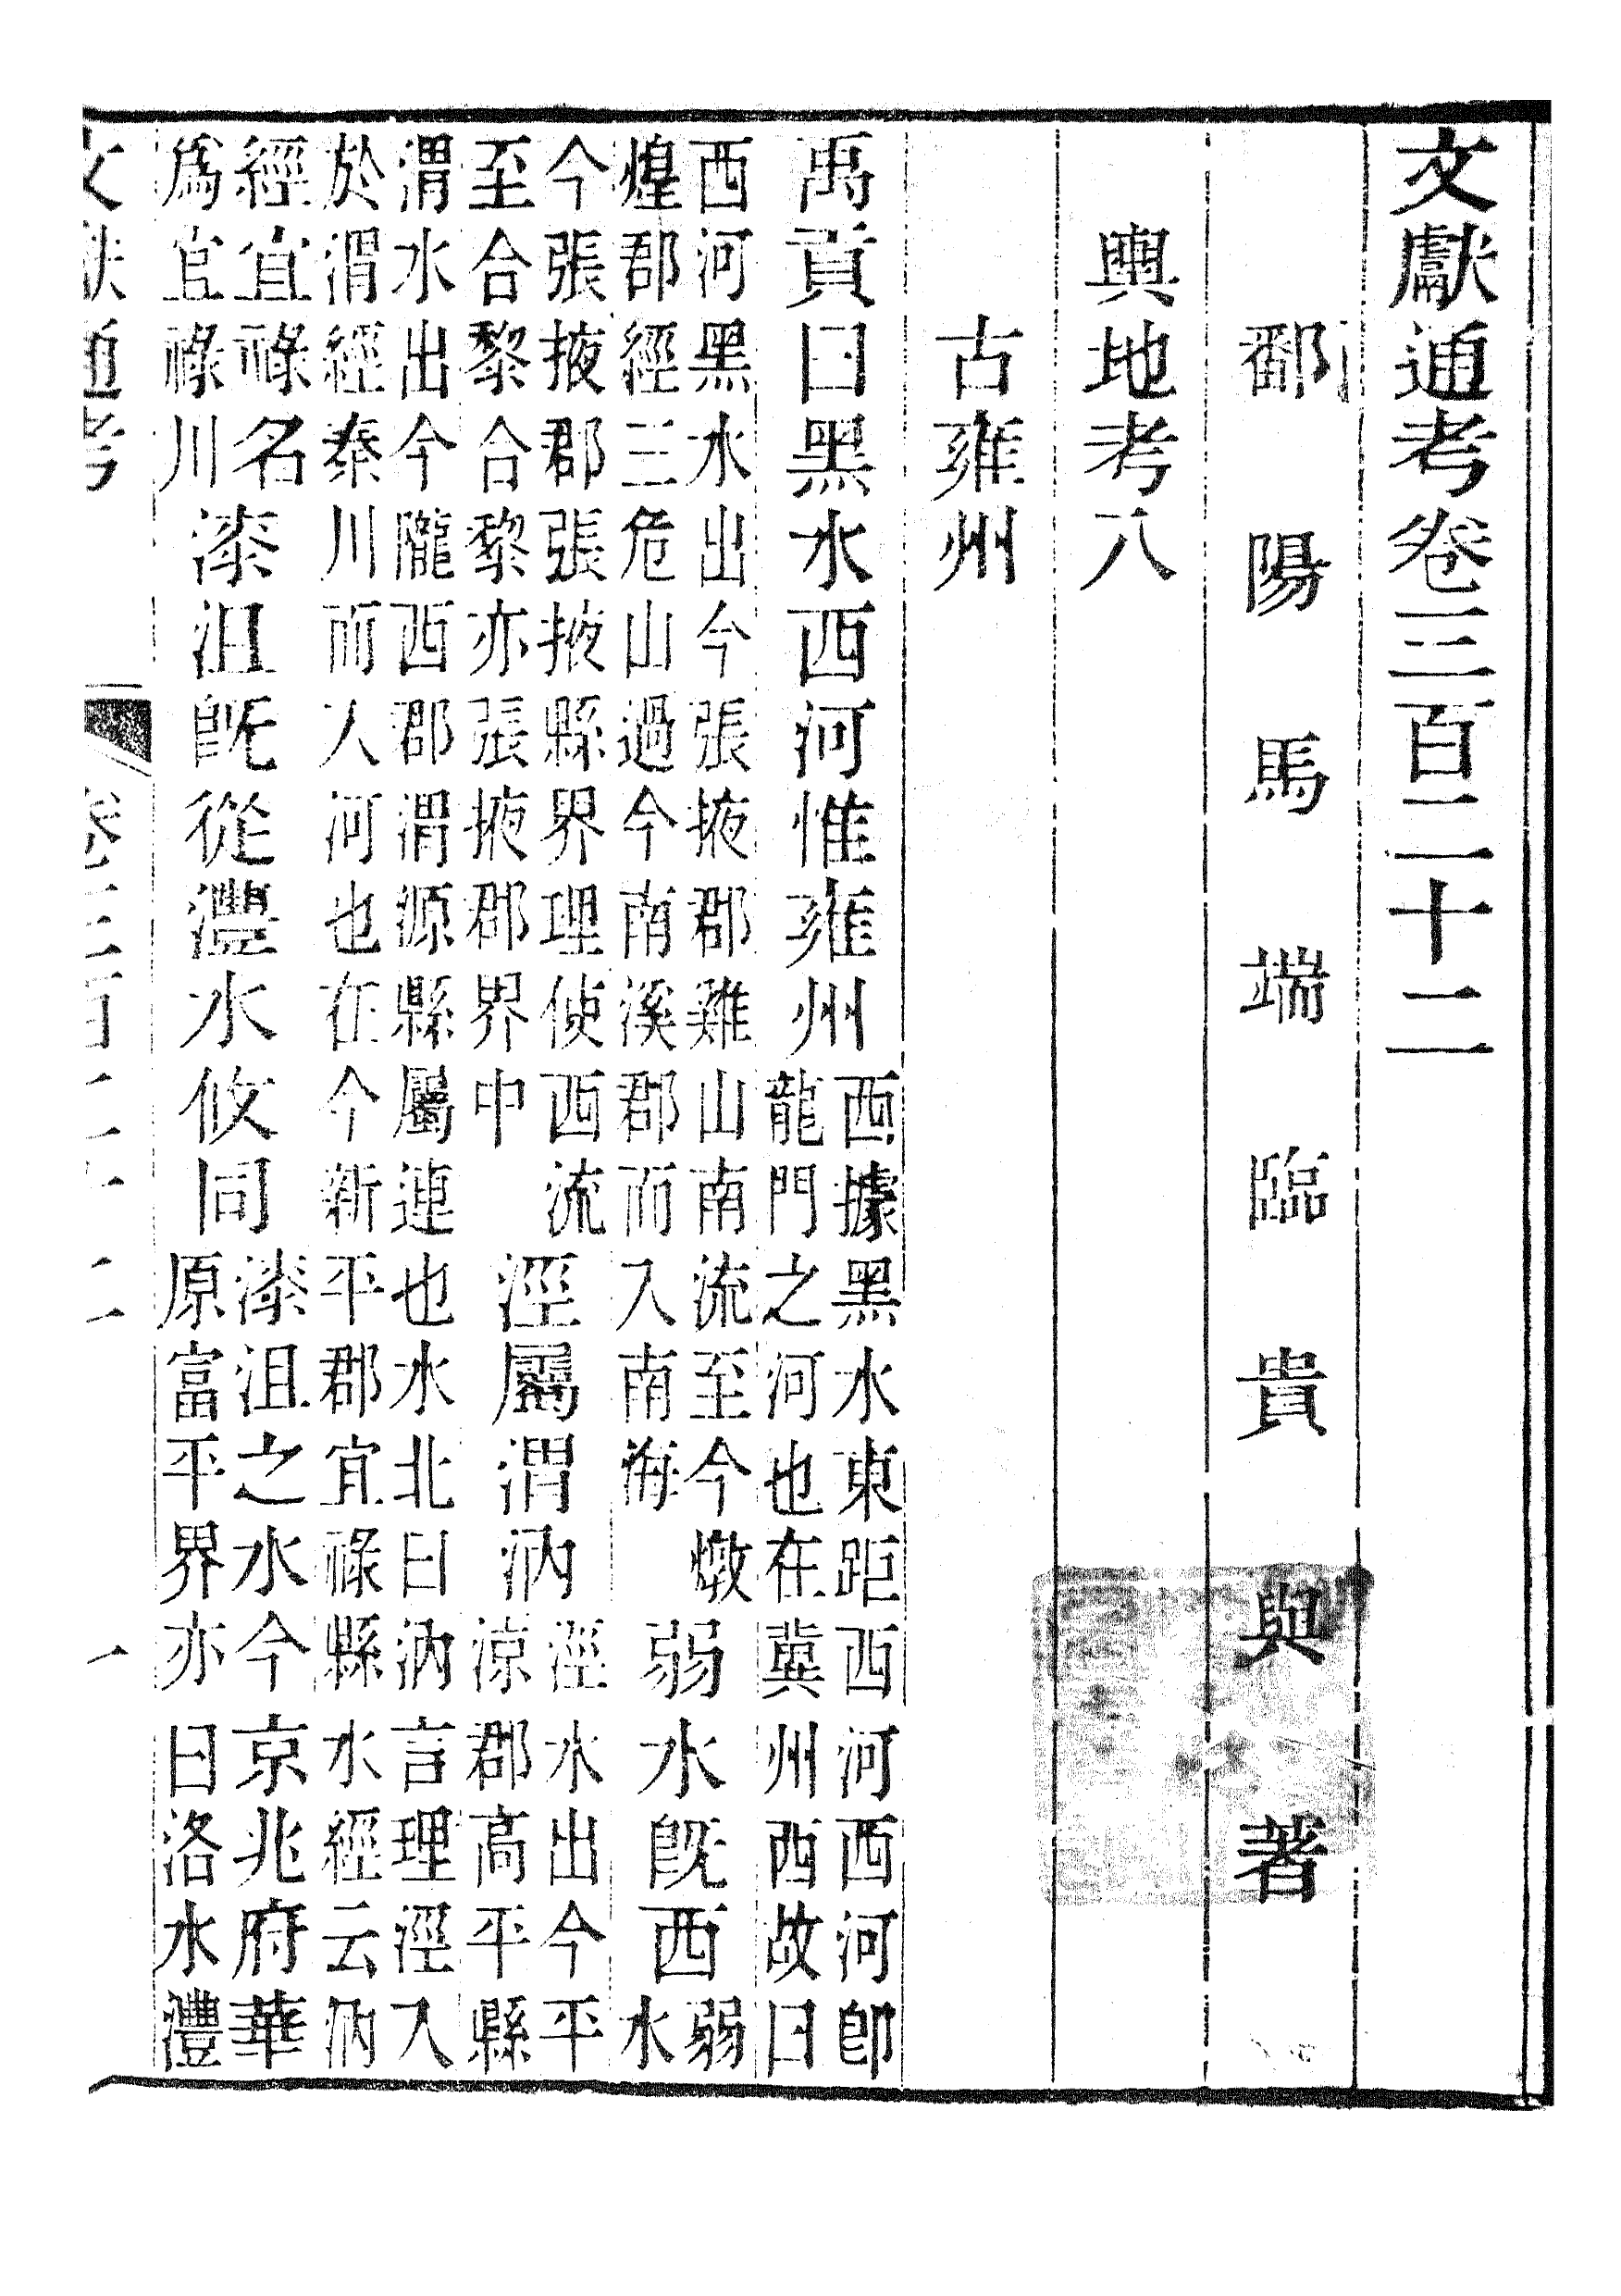 文獻通考卷三百二十二
鄱陽馬端臨貴與著
輿地考八
古雍州
禹貢曰黑水西河惟雍州西據黑水東距西河西河即龍門之河也在冀州西故曰
西河黑水出今張掖郡雞山南流至今燉煌郡經三危山過今南溪郡而入南海弱水既西弱水
今張掖郡張掖縣界理使西流至合黎合黎亦張掖郡界中涇屬渭汭涇水出今平涼郡高平縣
渭水出今隴西郡渭源縣屬連也水北曰汭言理涇入於渭經秦川而入河也在今新平郡宜祿縣水經云汭
經宜祿名爲宜祿川漆沮既從灃水攸同漆沮之水今京兆府華原富平界亦曰洛水灃
文獻通考 卷三百二十二 一